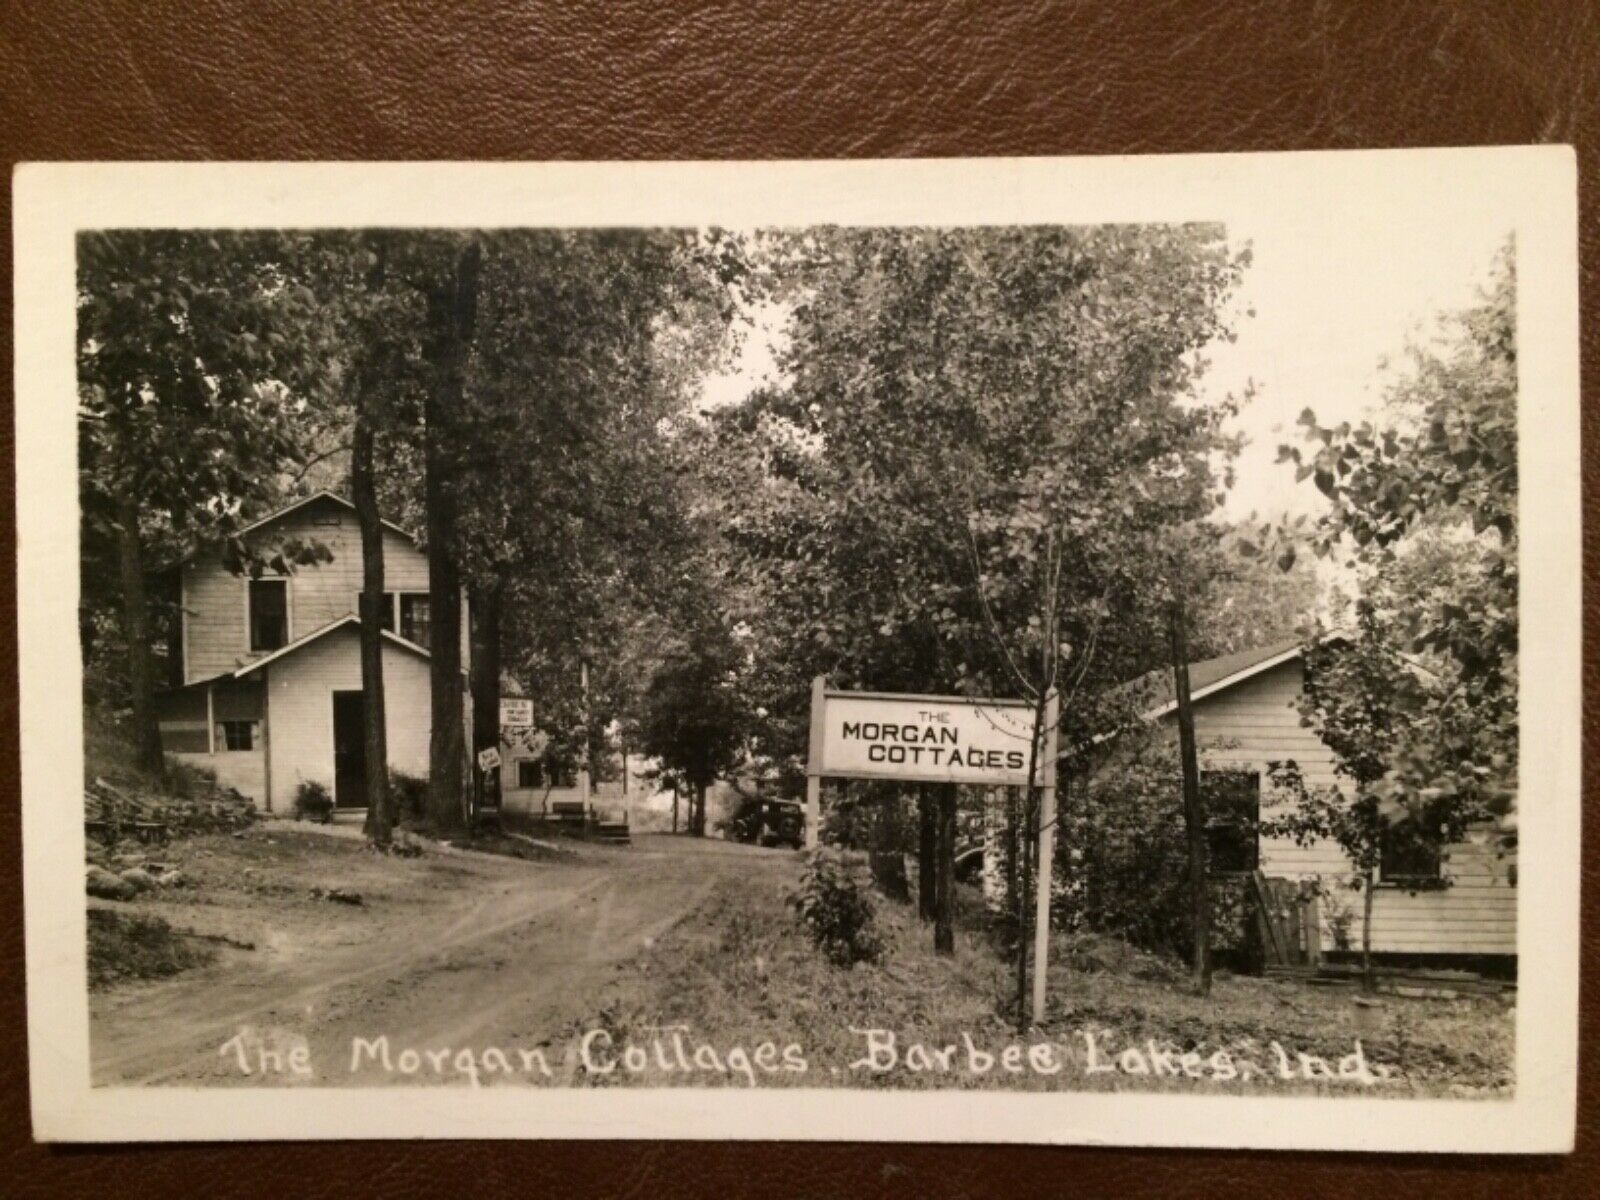 THE
MORGAN
COTTAGES
The Morgan Cottages. Barbee Lakes, Ind.